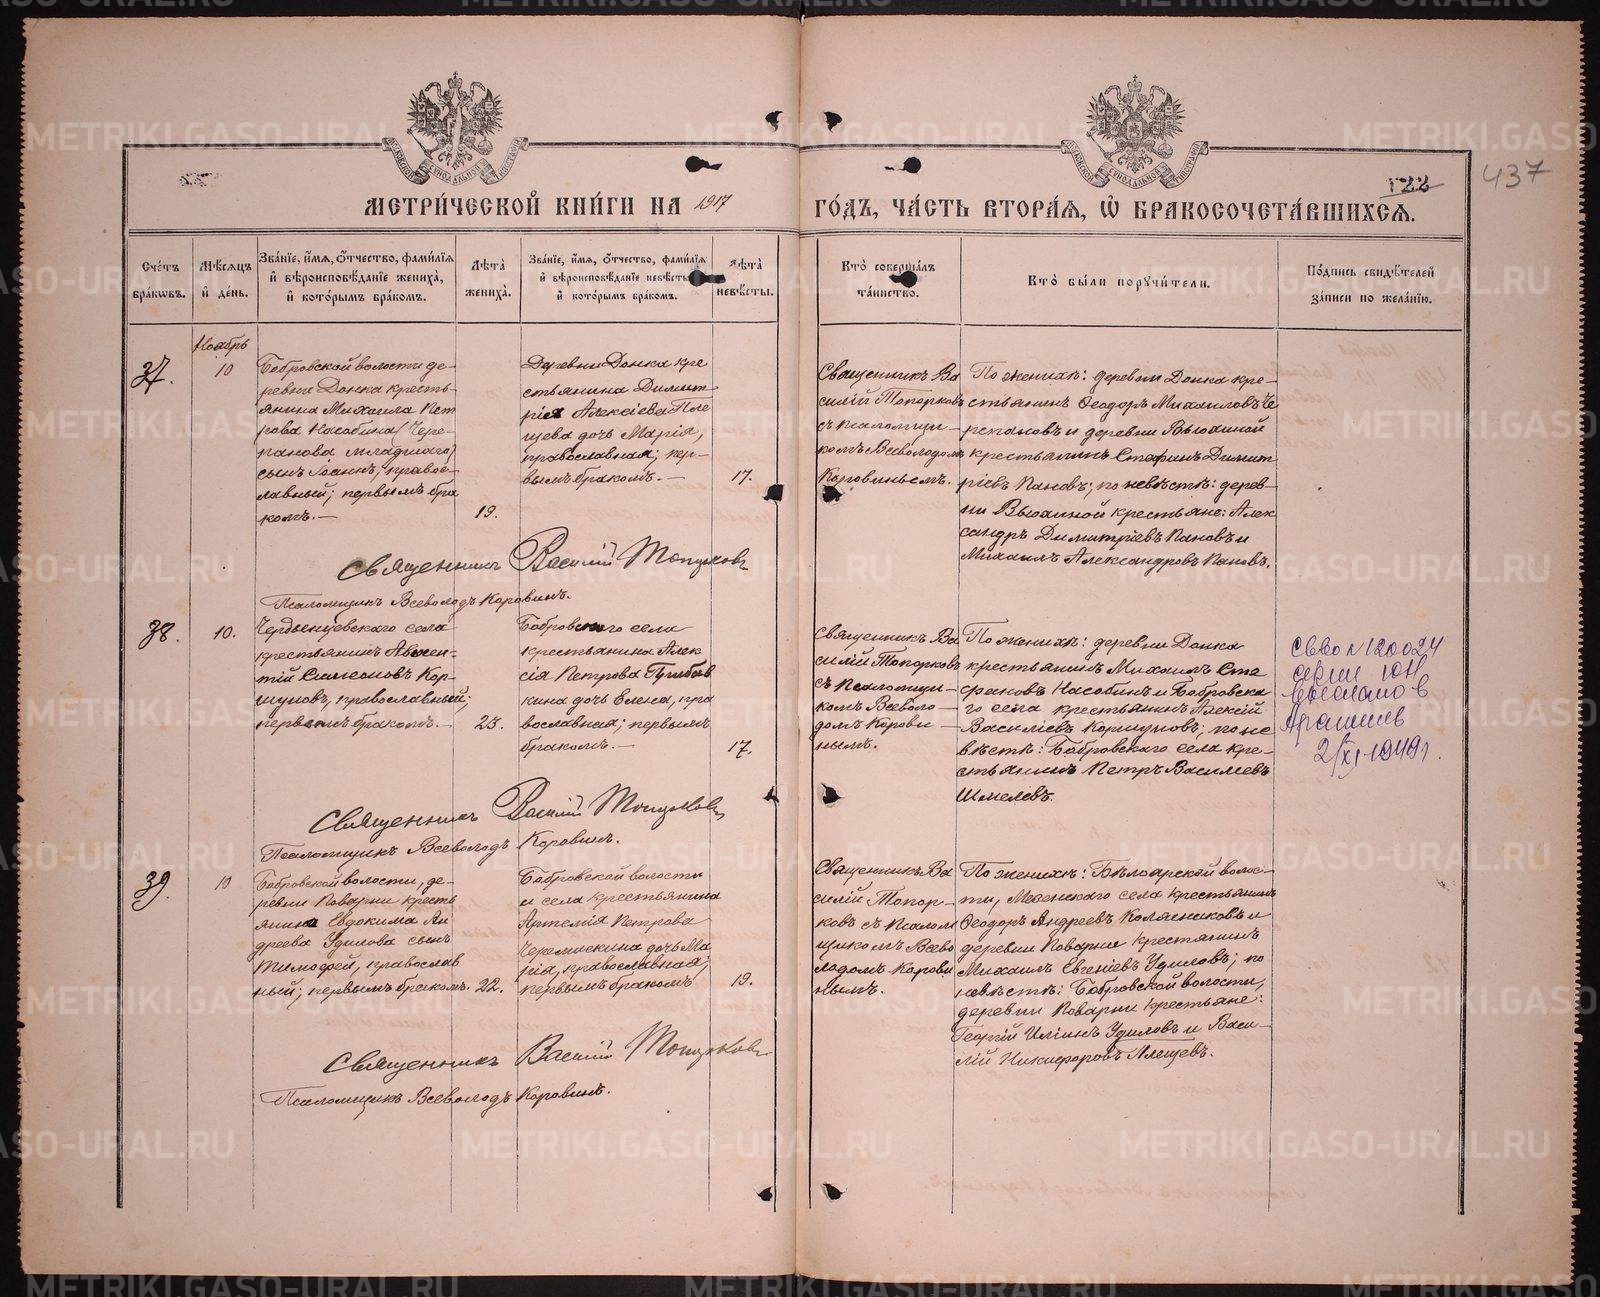 437
122
МЕТРИЧЕСКОЙ КНИГИ НА 1917 ГОДЪ, ЧАСТЬ ВТОРАЯ, Ѡ БРАКОСОЧЕТАВШИХСЯ.
Счетъ браковъ.
Мѣсяцъ и день.
Званіе, имя, отчество, фамилія
и вѣроисповѣданіе жениха,
и которымъ бракомъ.
Лѣта жениха.
Званіе, имя, отчество, фамилія
и вѣроисповѣданіе невѣсты
и которымъ бракомъ.
Лѣта невѣсты.
Кто совершалъ таинство.
Кто были поручители.
Подпись свидѣтелей
записи по желанію.
Ноябрь
37.
10
Бобровской волости де-
ревни Донка кресть-
янина Михаила Пет
рова Насобина (Чере-
панова младшаго)
сынъ Іоаннъ, правос-
лавный; первымъ бра
комъ.—
19.
Деревни Донка кре
стьянина Димит
рія Алексіева Пле
щева дочь Марія,
православная; пер-
вымъ бракомъ.—
17.
Священникъ Ва
силій Топорковъ
съ псаломщи-
комъ Всеволодомъ
Коровинымъ.
По женихѣ: деревни Донка кре-
стьянинъ Ѳеодоръ Михаиловъ Че
репановъ и деревни Вьюхиной
крестьянинъ Стефанъ Димит
ріевъ Пановъ; по невѣстѣ: дерев-
ни Вьюхиной крестьяне: Алек
сандръ Димитріевъ Пановъ и
Михаилъ Александровъ Пановъ.
Священникъ Василій Топорковъ
Псаломщикъ Всеволодъ Коровинъ.
38.
10.
села
крестьянинъ Авксен-
тій Симеоновъ Кор-
шуновъ, православный;
первымъ бракомъ.—
23.
Бобровскаго села
крестьянина Алек
сія Петрова
кина дочь Елена, пра
вославная; первымъ
бракомъ.—
17.
Священникъ Ва
силій Топорковъ
съ псаломщи-
комъ Всеволо-
домъ Корови-
нымъ.
По женихѣ: деревни Донка
крестьянинъ Михаилъ Сте
фановъ Насобинъ и Бобровска
го села крестьянинъ Алексій
Василіевъ Коршуновъ; по не
вѣстѣ: Бобровскаго села кре-
стьянинъ Петръ Василіевъ
Шмелевъ.
Св-во № 120024
серии ЮН
Арамиль
2/XI-1949г.
Священникъ Василій Топорковъ
Псаломщикъ Всеволодъ Коровинъ.
39.
10
Бобровской волости, де-
ревни Поварни кресть
янина Евдокима Ан
дреева Удилова сынъ
Тимофей, православ
ный; первымъ бракомъ.
22.
Бобровской волости
и села крестьянина
Артемія Петрова
Черемискина дочь Ма
рія, православная;
первымъ бракомъ
19.
Священникъ Ва
силій Топор-
ковъ съ псалом
щикомъ Всево
лодомъ Корови
нымъ.
По женихѣ: Бѣлоярской волос-
ти, Мезенскаго села крестьянинъ
Ѳеодоръ Андреевъ Колясниковъ и
деревни Поварни крестянинъ
Михаилъ Евгеніевъ Удиловъ; по
невѣстѣ: Бобровской волости,
деревни Поварни крестьяне:
Георгій Илiинъ Удиловъ и Васи-
лій Никифоровъ Плещевъ.
Священникъ Василій Топорковъ
Псаломщикъ Всеволодъ Коровинъ.
METRIKI.GASO-URAL.RU